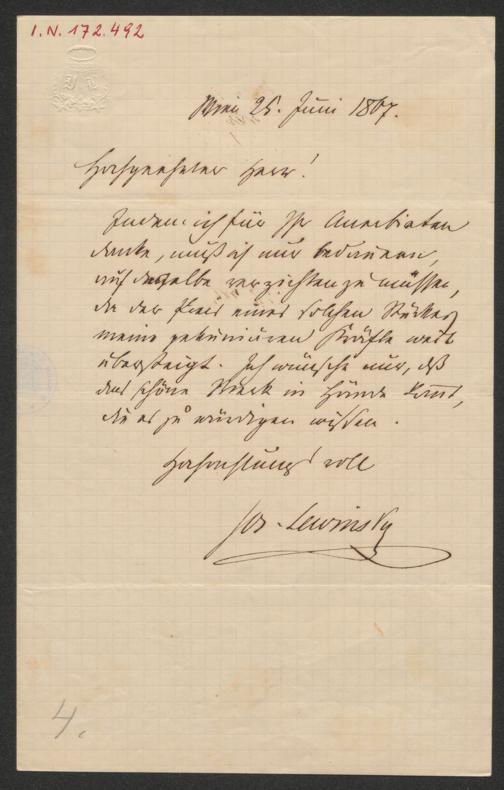 I.N. 172.492
J L
Wien 25. Juni 1867.
Hochgeehrter Herr!
Indem ich für Ihr Anerbieten
danke, muß ich nur bedauern,
auf dasselbe verzichten zu müssen,
da der Preis eines solchen Stückes
meine pekuniären Kräfte weit
übersteigt. Ich wünsche nur, daß
das schöne Werk in Hände komt,
die es zu würdigen wissen.
Hochachtungsvoll
Jos. Lewinsky
4.